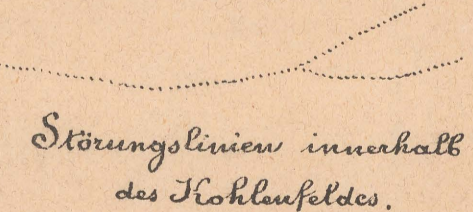 Störungslinien innerhalb
des Kohlenfeldes.